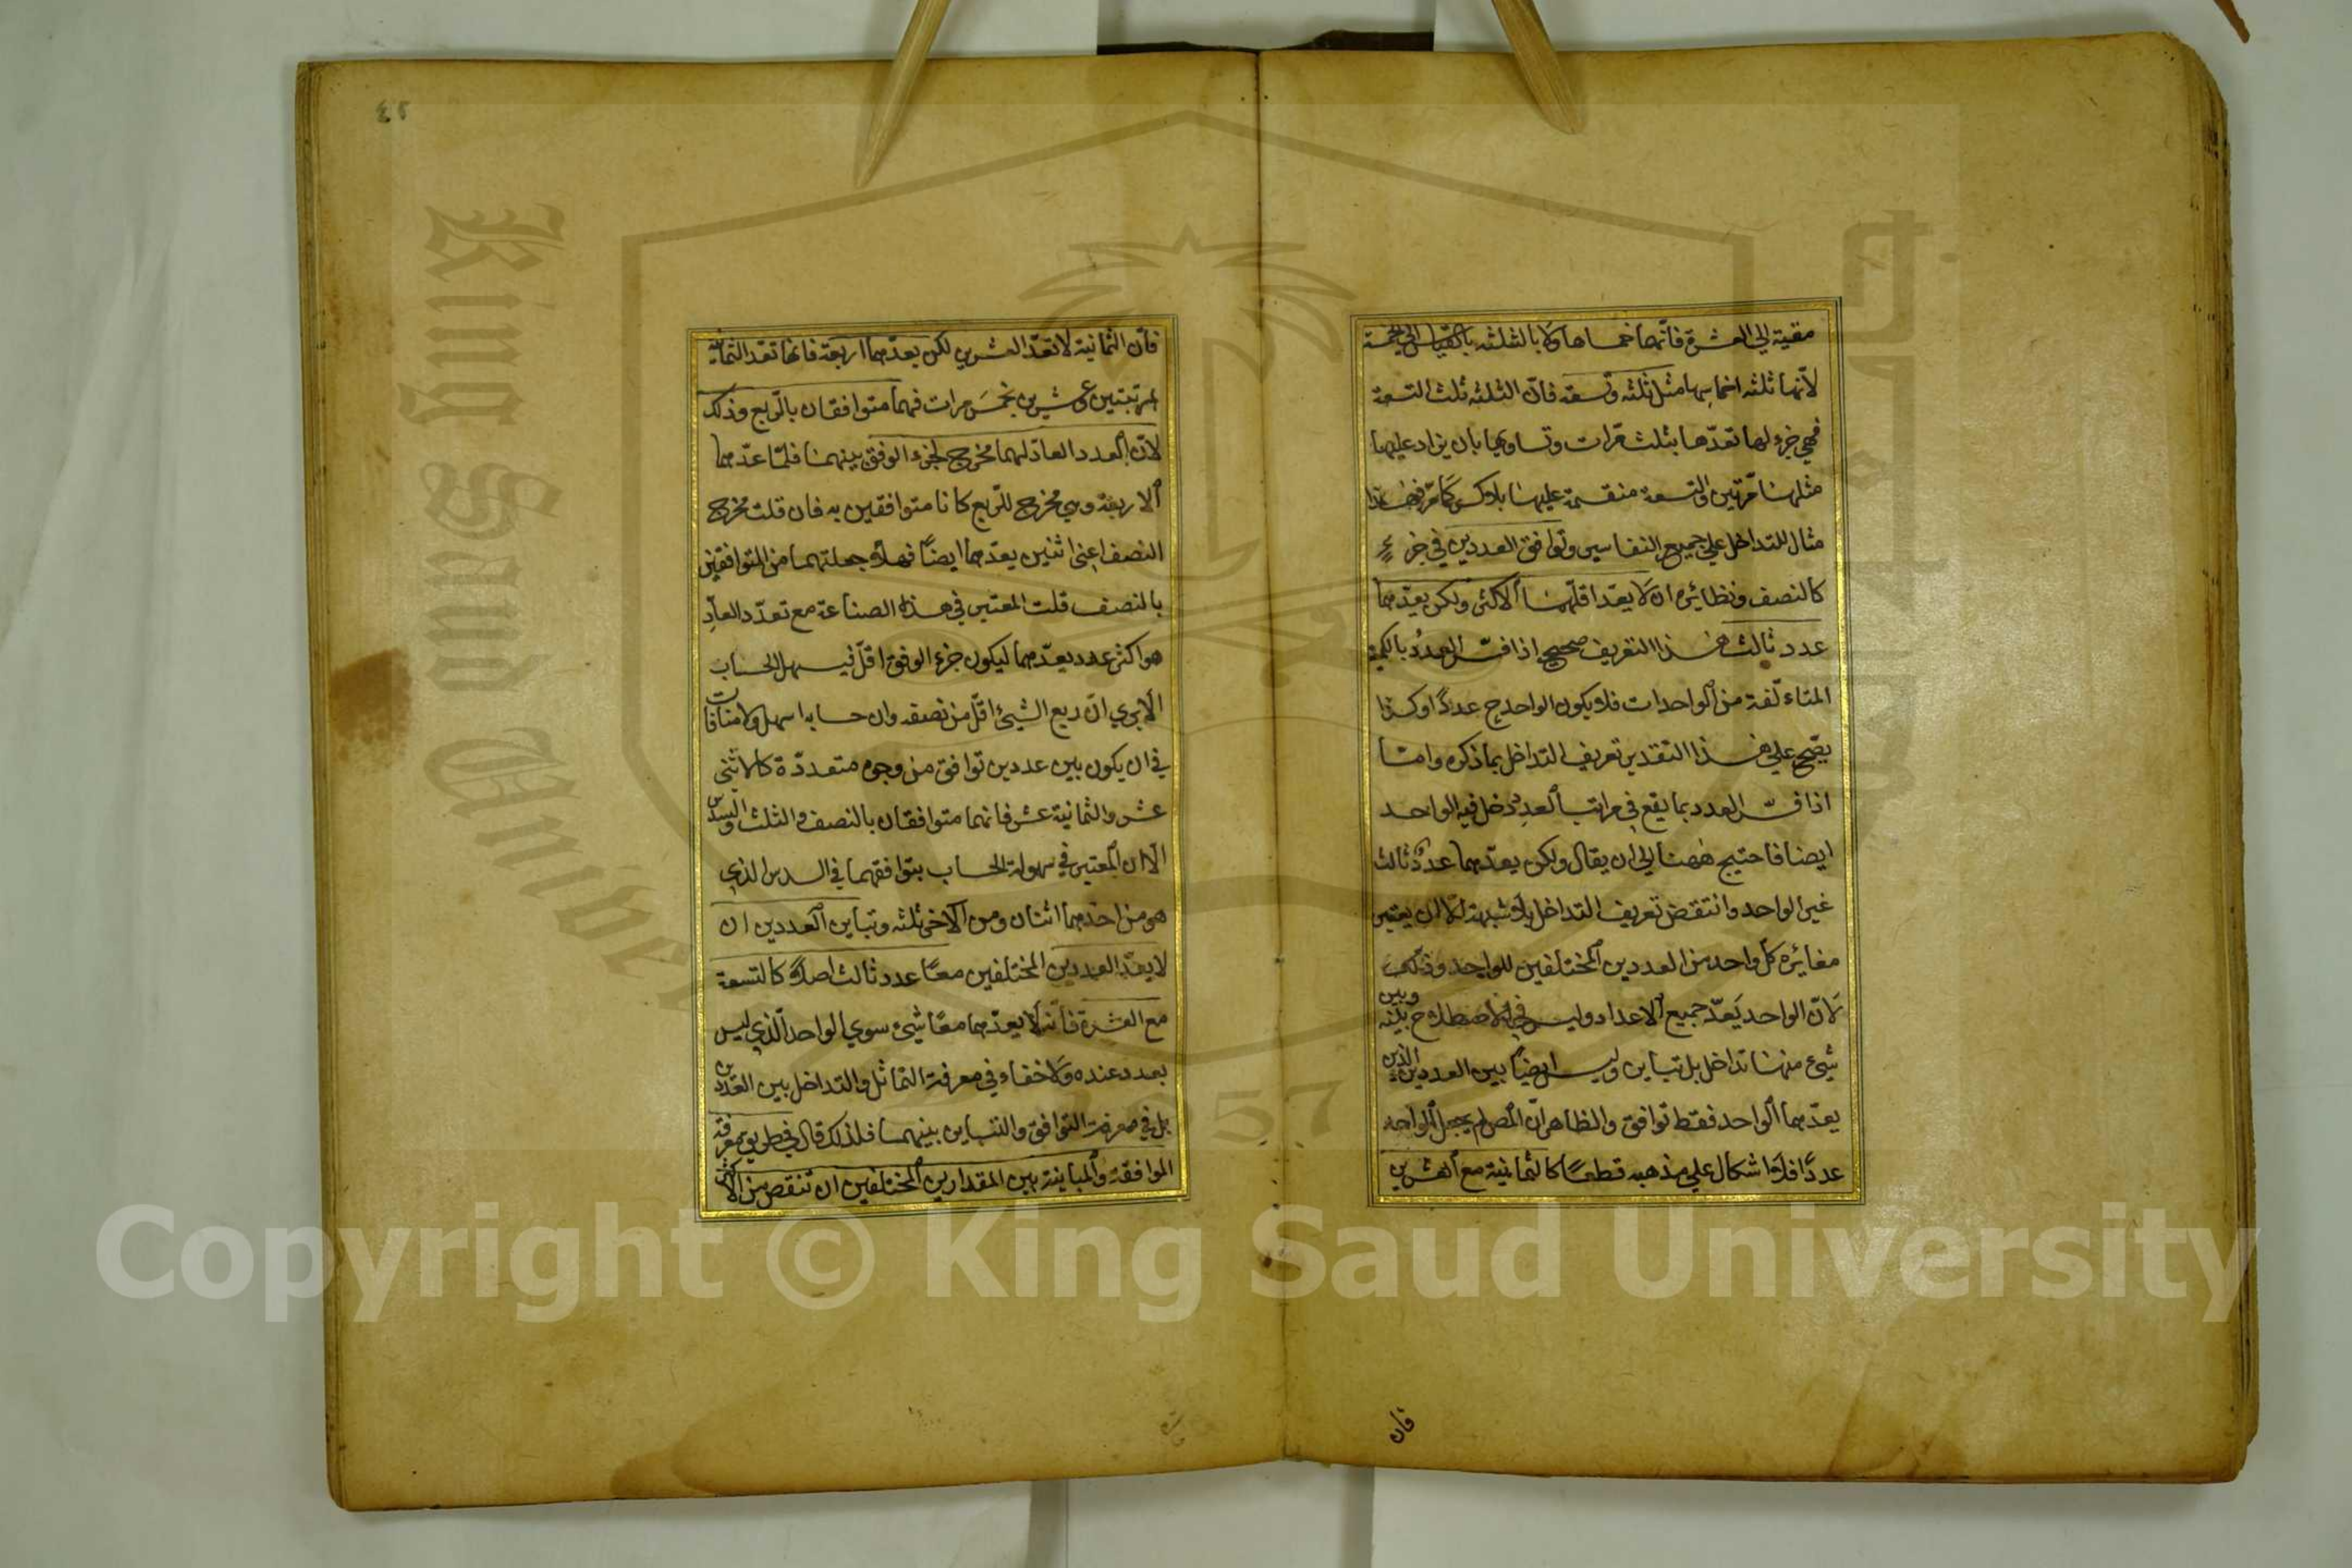 مقيسة الى العشرة فانّهما خمساها ولا بالثلثه بالقياس الى الخمسة
لانّها ثلثه اخماسها مثل ثلثه وتسعه فانّ الثلثه ثلث التسعة
فهي جزء لها تعدّها بثلث مرّات وتساويها بان يزاد عليها
مثلها مرّتين والتسعة منقسمة عليها بلا كسر كما مرّ فهذا
مثال للتداخل علي جميع التفاسير وتوافق العددين في جزءٍ
كالنصف ونظائره ان لا يعدّ اقلّهما الاكثر ولكن يعدّهما
عدد ثالث هذا التعريف صحيح اذا فسّر العددُ بالكمية
المتاءلّفة من الواحدات فلا يكون الواحد ح عدداً وكذا
يصّح علي هذا التقدير تعريف التداخل بما ذكره وامّا
اذا فسّر العدد بما يقع في مراتب العدد دخل فيه الواحد
ايضا فاحتيج ههنا الي ان يقال ولكن يعدّهما عددٌ ثالث
غير الواحد وانتقض تعريف التداخل بلا شبهة الّا ان يعتبر
مغائرة كل واحد من العددين المختلفين للواحد وذلك
لانّ الواحد يَعدّ جميع الاعداد وليس في الاصطلاح بينه وبين
شيء منها تداخل بل تباين وليس ايضاً بين العددين الذين
يعدّهما الواحد فقط توافق والظاهر انّ المص لم يجعل الواحد
عدداً فلا اشكال علي مذهبه قطعاً كالثمانية مع العشرين
فان
٤٢
فانّ الثمانية لا تعدّ العشرين لكن يعدّهما اربعة فانها تعد الثمانية
بمرتبتين وعشرين بخمسَ مرات فهما متوافقان بالرّبع وذلك
لانّ العدد العادّ لهما مخرج لجزء الوفق بينهما فلمّا عدّهما
الاربعة وهي مخرج للرّبع كانا متوافقين به فان قلت مخرج
النصف اعني اثنين يعدّهما ايضاً فهلّا جعلتهما من المتوافقين
بالنصف قلت المعتبر في هذه الصناعة مع تعدّد العادِّ
هو اكثر عدد يعدّهما ليكون جزء الوفق اقلّ فيسهل الحساب
الا يري انّ ربع الشيئ اقلّ من نصفه وان حسابه اسهل ولا منافات
في ان يكون بين عددين توافق من وجوه متعددّة كالاثني
عشر والثمانية عشر فانهما متوافقان بالنصف والثلث والسدس
الّا ان المعتبر في سهولة الحساب بتوافقهما في السدس الذي
هو من احدهما اثنان ومن الآخر ثلثه وتباين العددين ان
لا يعدّ العددين المختلفين معاً عدد ثالث اصلاً كالتسعة
مع العشرة فانّه لا يعدّهما معاً شيئ سوي الواحد الّذي ليس
بعدد عنده ولا خفاء في معرفة التماثل والتداخل بين العددين
بل في معرفت التوافق والتباين بينهما فلذلك قال وطريق معرفة
الموافقة والمباينة بين المقدارين المختلفين ان تنقص من الاكثر
King Saud University
1957
Copyright © King Saud University